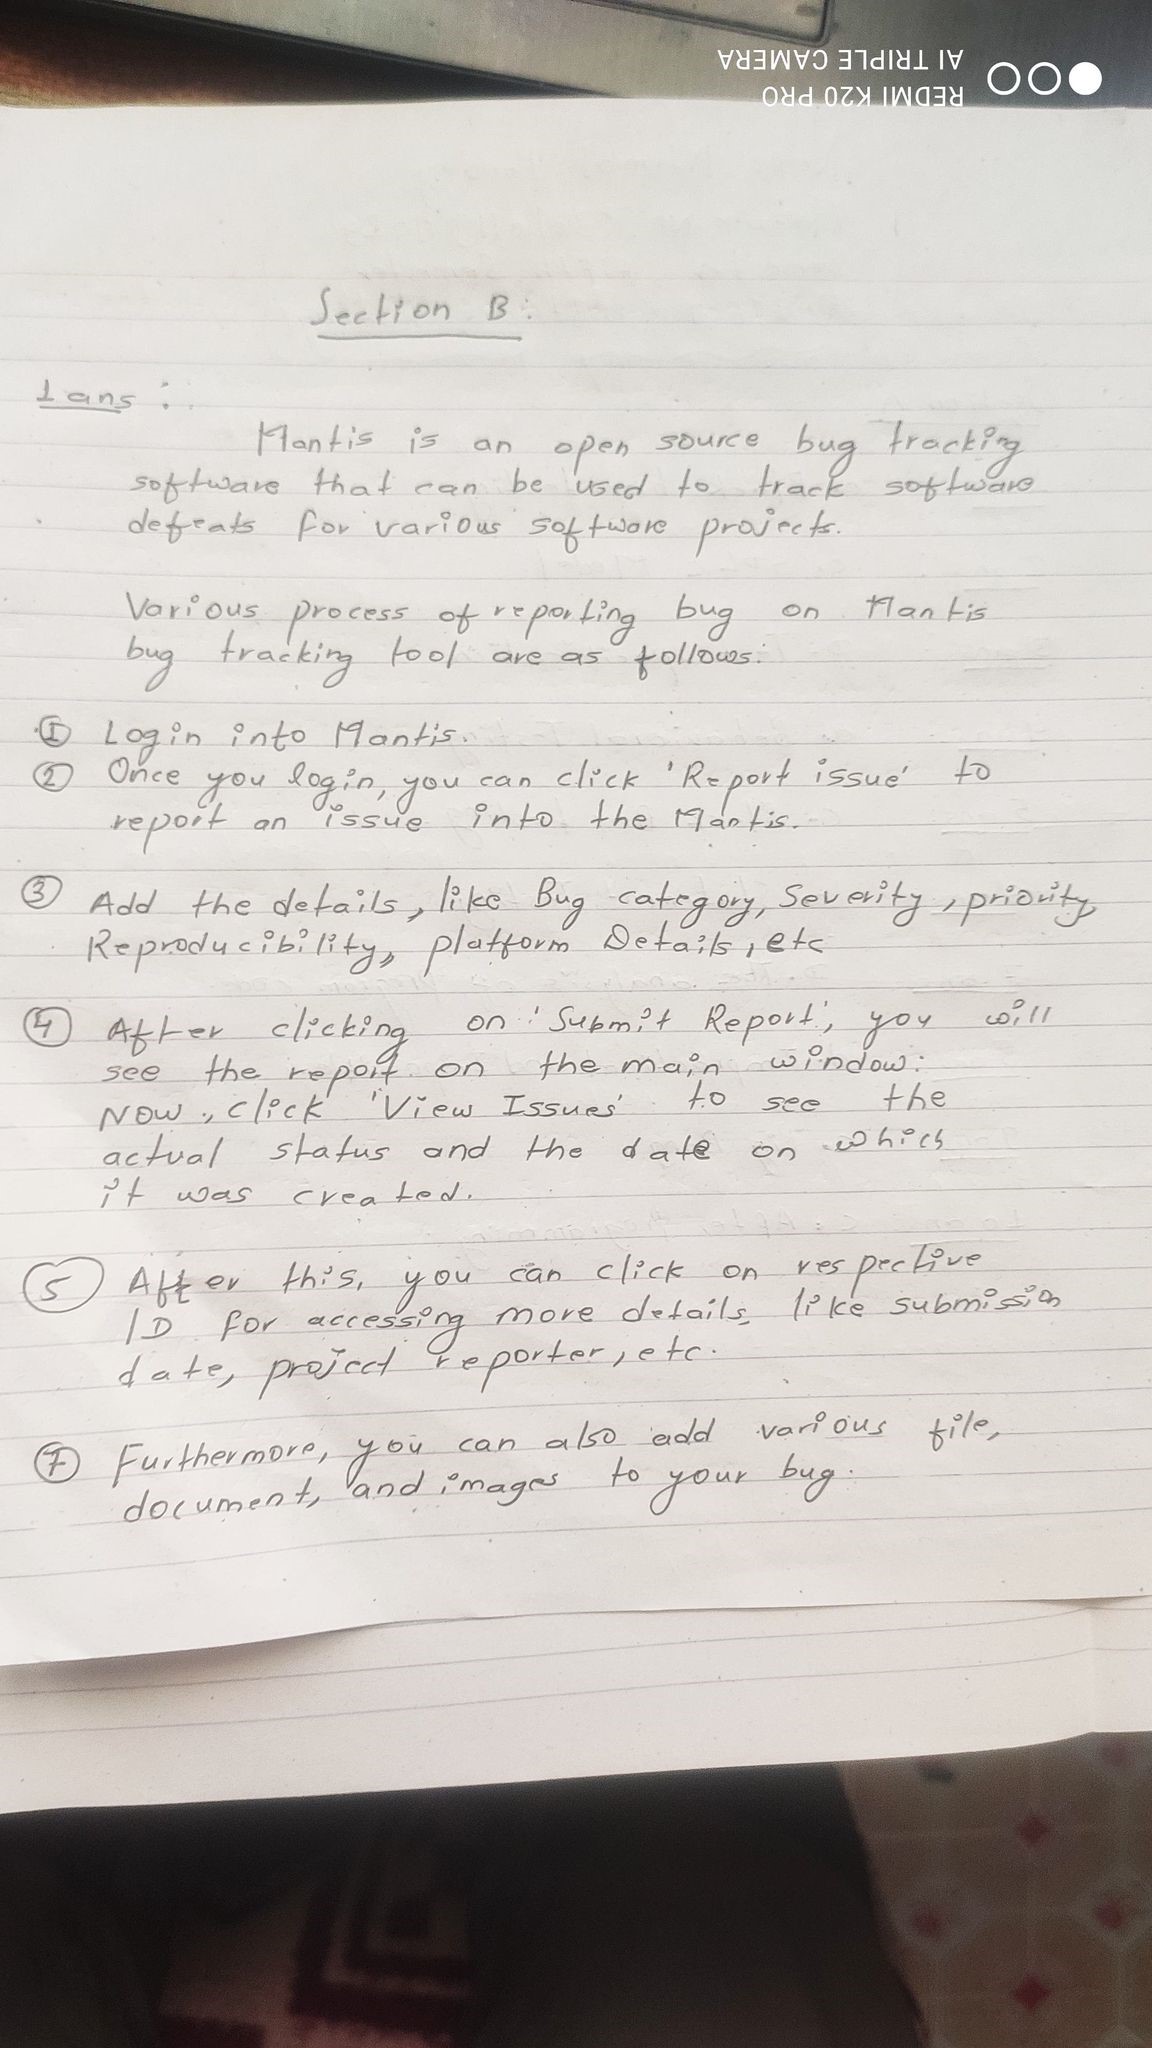 AI TRIPLE CAMERA
REDMI K20 PRO
Section B:
1 ans :
Mantis is an open source bug tracking
software that can be used to track software
defeats for various software projects.
Various process of reporting bug on Mantis
bug tracking tool are as follows:
① Login into Mantis.
② Once you login, you can click 'Report issue' to
report an issue into the Mantis.
③ Add the details, like Bug category, Severity, priority,
Reproducibility, platform Details, etc
④ After clicking on 'Submit Report', you will
see the report on the main window.
Now, click 'View Issues' to see the
actual status and the date on which
it was created.
⑤ After this, you can click on respective
ID for accessing more details, like submission
date, project reporter, etc.
⑦ Furthermore, you can also add various file,
document, and images to your bug.